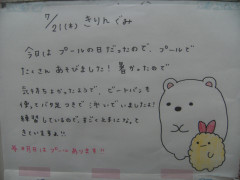 7/21(木) きりんぐみ
今日は プールの日だったので、プールで
たくさん あそびました! 暑かったので
気持ちよかったようで、ビート板を
使ってバタ足で
練習しているので、すごく上手になって
きていますよ!!
プール あります!!